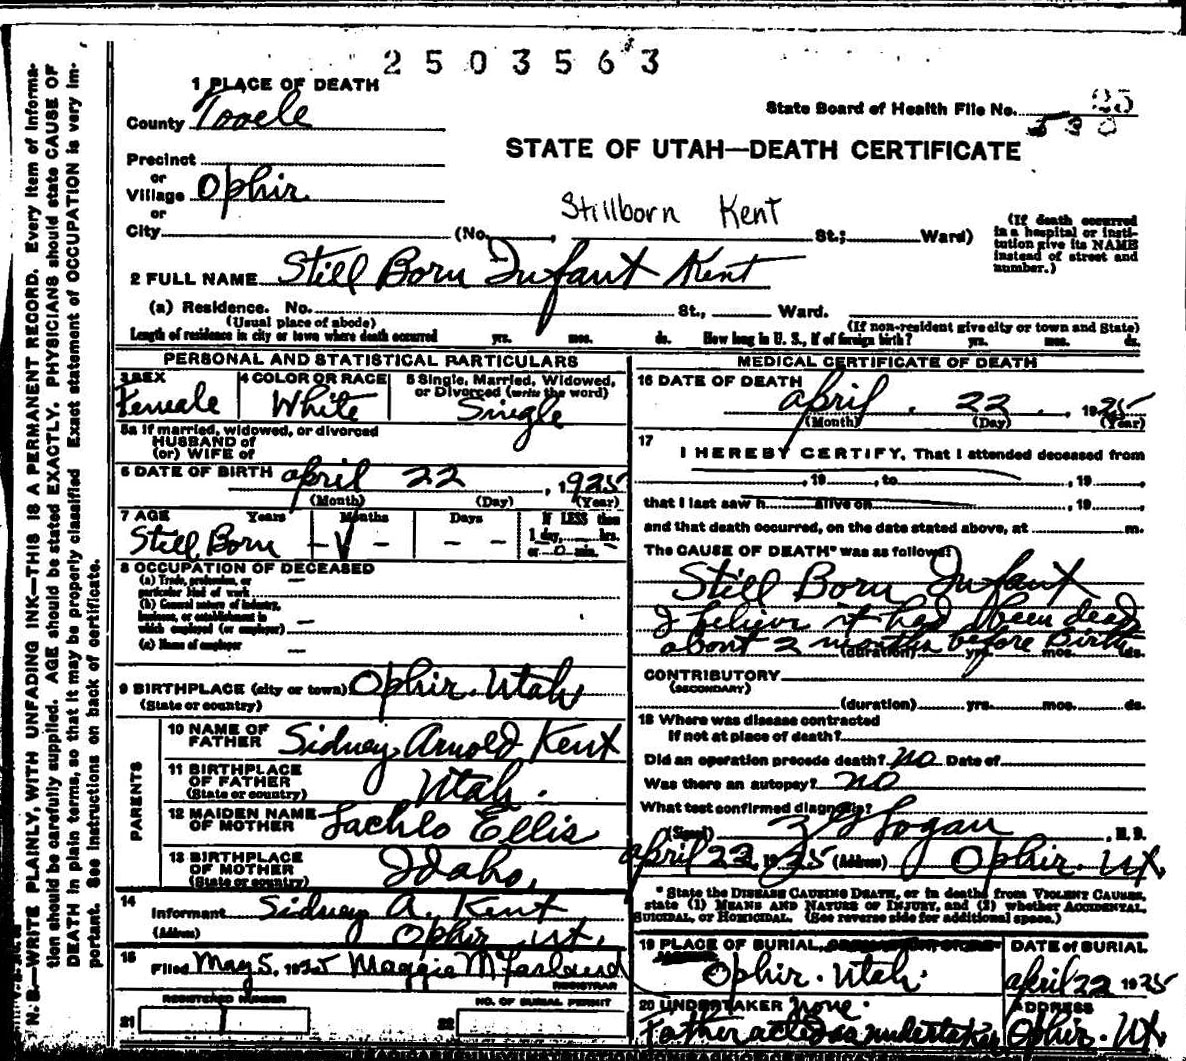 2503563
1 PLACE OF DEATH
County Tooele
State Board of Health File No. 25
530
STATE OF UTAH—DEATH CERTIFICATE
Precinct
or
Village Ophir
or
Stillborn Kent
City (No. , St.; Ward)
(If death occurred in a hospital or institution give its NAME instead of street and number.)
2 FULL NAME Still Born Infant Kent
(a) Residence. No. St., Ward.
(Usual place of abode) (If non-resident give city or town and State)
Length of residence in city or town where death occurred yrs. mos. ds. How long in U. S., if of foreign birth? yrs. mos. ds.
PERSONAL AND STATISTICAL PARTICULARS
3 SEX 4 COLOR OR RACE 5 Single, Married, Widowed, or Divorced (write the word)
Female White Single
5a If married, widowed, or divorced
HUSBAND of
(or) WIFE of
6 DATE OF BIRTH April 22, 1925
(Month) (Day) (Year)
7 AGE Years Months Days If LESS than
1 day, hrs.
or 0 min.
Still Born - - - -
8 OCCUPATION OF DECEASED
(a) Trade, profession, or
particular kind of work —
(b) General nature of industry,
business, or establishment in
which employed (or employer) —
(c) Name of employer —
9 BIRTHPLACE (city or town) Ophir. Utah
(State or country)
PARENTS
10 NAME OF FATHER Sidney Arnold Kent
11 BIRTHPLACE OF FATHER Utah.
(State or country)
12 MAIDEN NAME OF MOTHER Ellis
13 BIRTHPLACE OF MOTHER Idaho.
(State or country)
14
Informant Sidney A. Kent
(Address) Ophir Ut.
15
Filed May 5, 1925 Maggie McFarland
REGISTRAR
REGISTERED NUMBER NO. OF BURIAL PERMIT
21 1 22
MEDICAL CERTIFICATE OF DEATH
16 DATE OF DEATH April 22, 1925
(Month) (Day) (Year)
17
I HEREBY CERTIFY, That I attended deceased from
, 19 , to , 19 ,
that I last saw h alive on , 19 ,
and that death occurred, on the date stated above, at m.
The CAUSE OF DEATH* was as follows:
Still Born Infant
I believe it had been dead
about 2 months before Birth
(duration) yrs. mos. ds.
CONTRIBUTORY
(SECONDARY)
(duration) yrs. mos. ds.
18 Where was disease contracted
if not at place of death?
Did an operation precede death? no Date of
Was there an autopsy? no
What test confirmed diagnosis?
(Signed) Logan, M. D.
April 22 1925 (Address) Ophir. Ut
* State the DISEASE CAUSING DEATH, or in deaths from VIOLENT CAUSES,
state (1) MEANS AND NATURE OF INJURY, and (2) whether ACCIDENTAL,
SUICIDAL, OR HOMICIDAL. (See reverse side for additional space.)
19 PLACE OF BURIAL, DATE of BURIAL
Ophir. Utah. April 22 1925
20 UNDERTAKER None. ADDRESS
Father acted as undertaker Ophir. Ut
N. B.—WRITE PLAINLY, WITH UNFADING INK—THIS IS A PERMANENT RECORD. Every item of informa-
tion should be carefully supplied. AGE should be stated EXACTLY. PHYSICIANS should state CAUSE OF
DEATH in plain terms, so that it may be properly classified Exact statement of OCCUPATION is very im-
portant. See instructions on back of certificate.